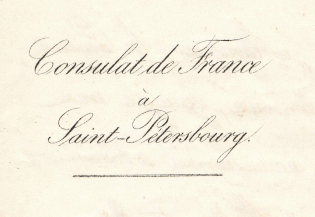 Consulat de France
à
Saint-Pétersbourg.